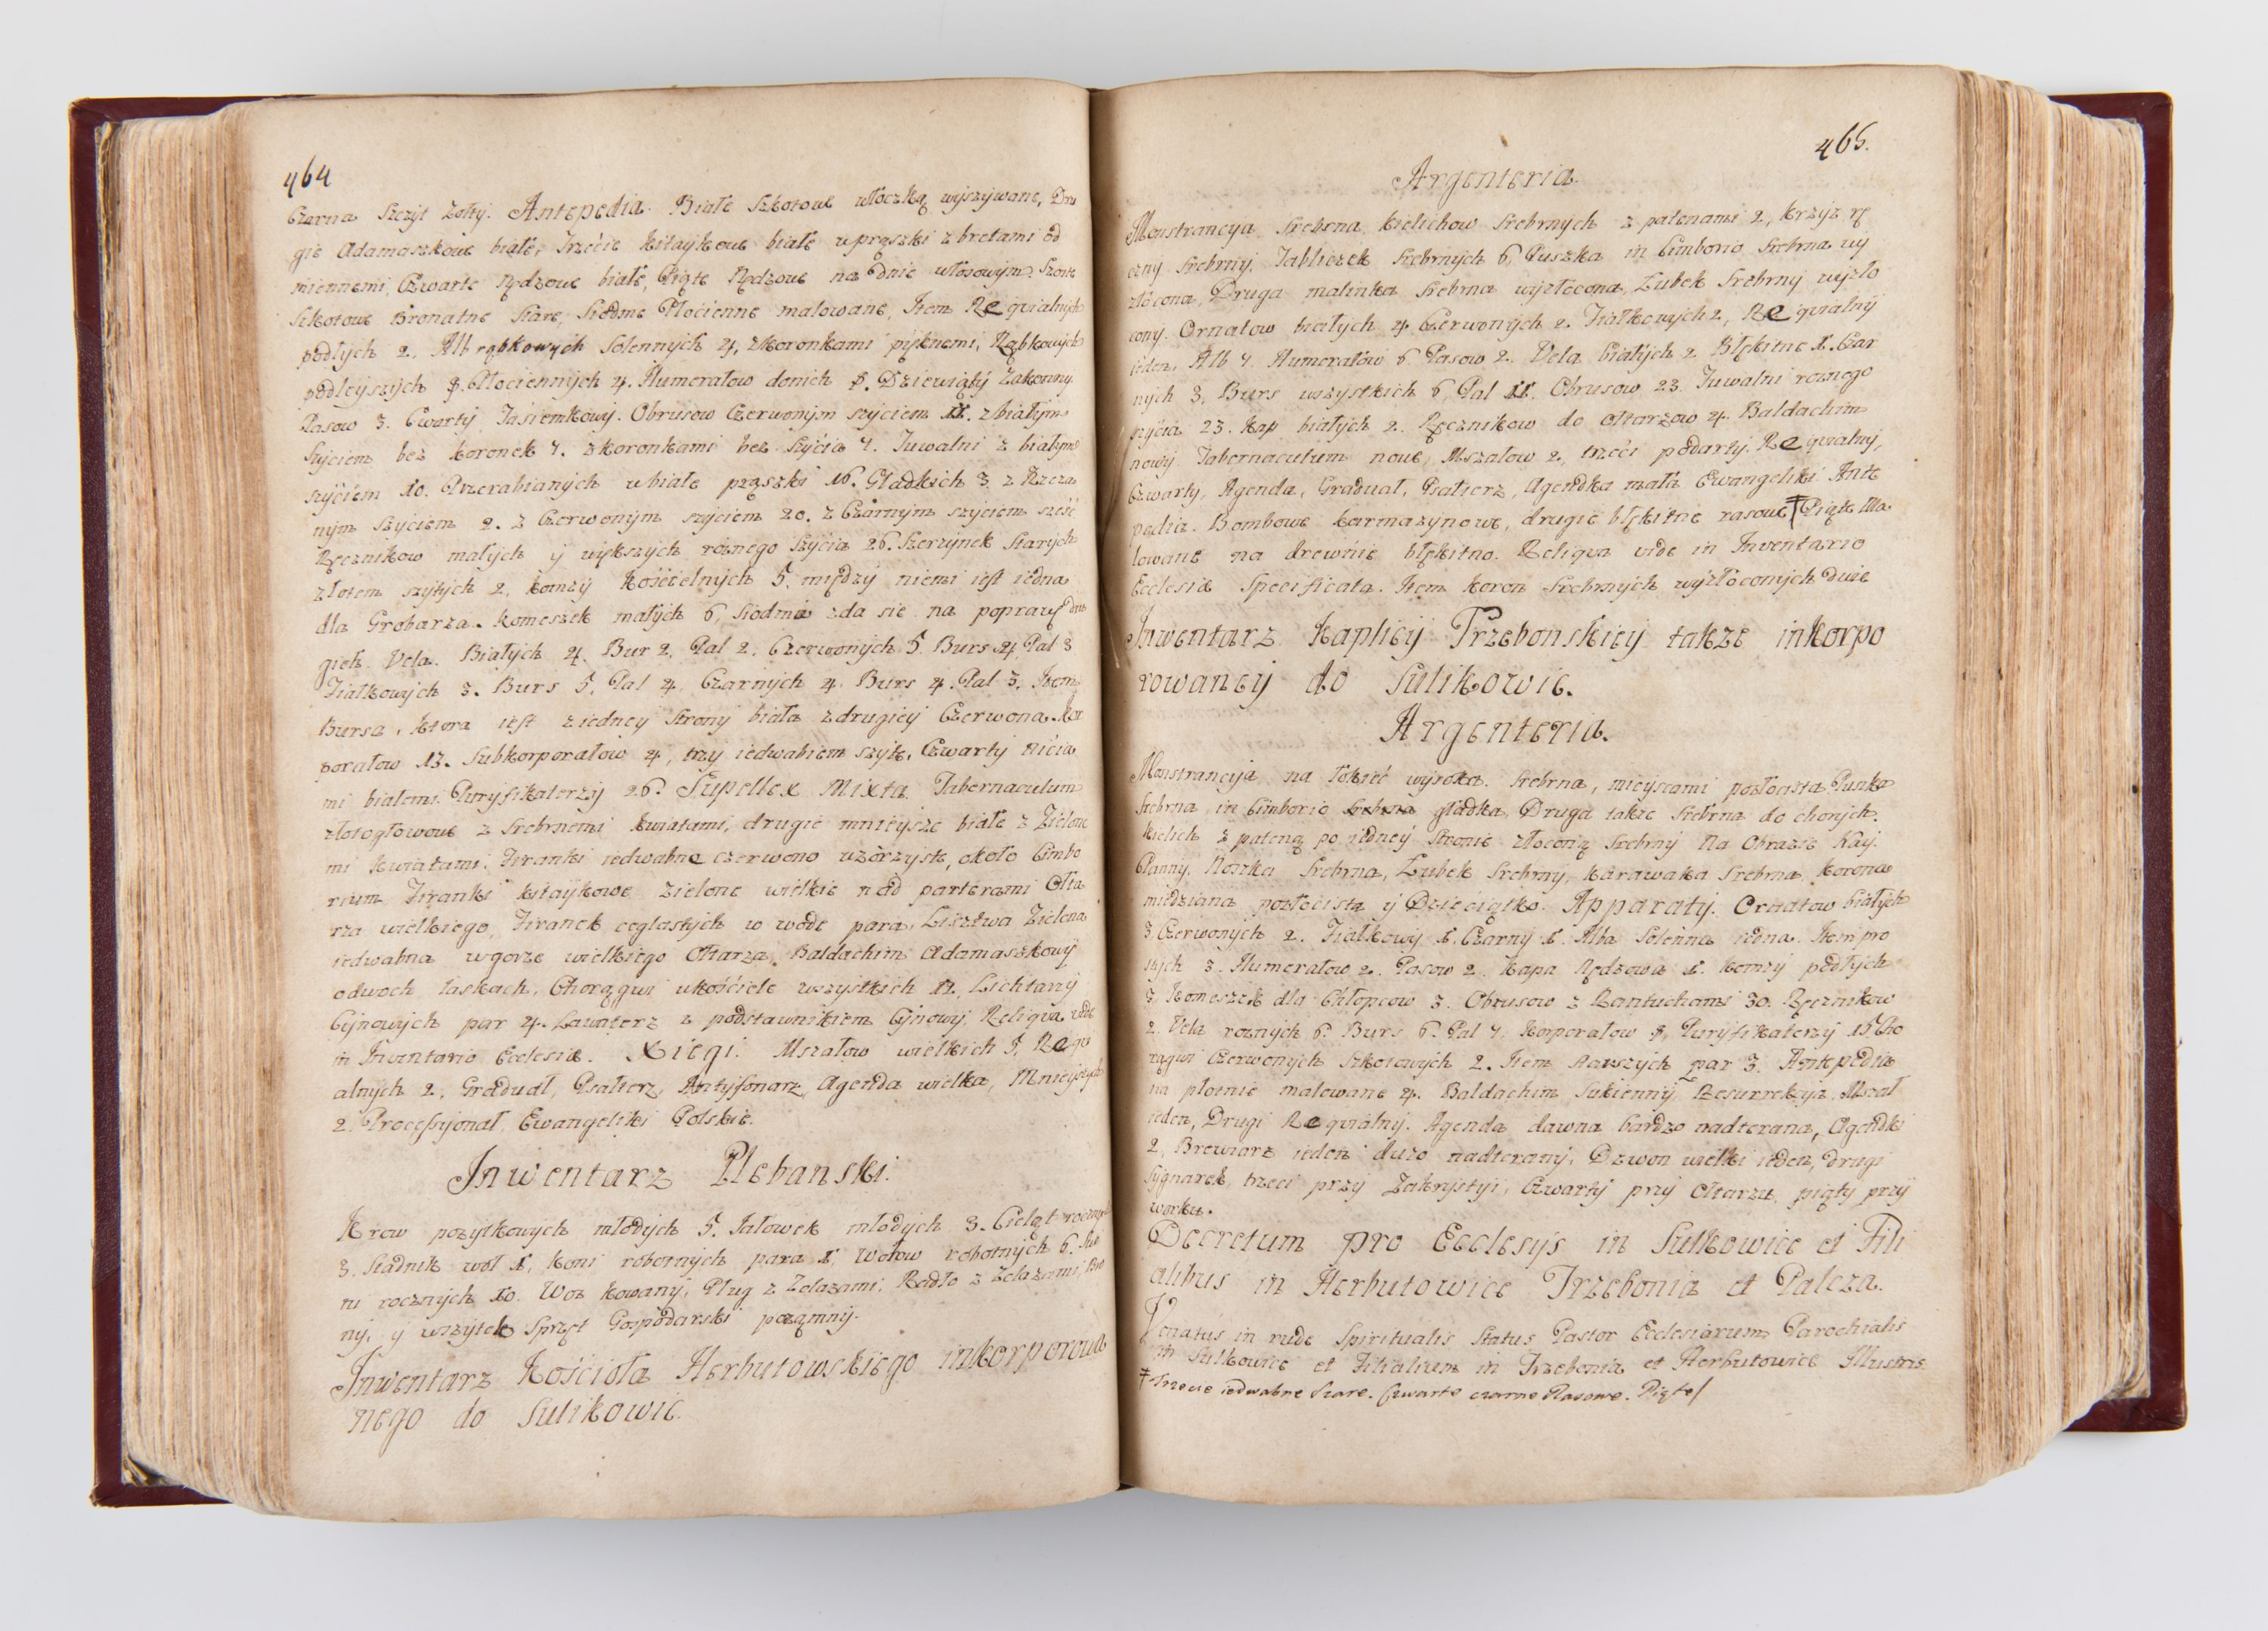 464
Czarna szczyt Zołty. Antepedia. Białe Szkotowe włoczką wyszywane, Dru
gie Adamaszkowe białe, Trzecie kitaykowe białe w prąszki z bretami od
miennemi, Czwarte Rądzowe białe, Piąte Rądzowe na dnie włosowym. Szoste
szkotowe Bronatne Stare, Siodme Płocienne malowane, Item Requialnych
podłych 2, Alb rąbkowych Solennych 4, z koronkami pięknemi, Rąbkowych
podleyszych 8. Płociennych 4. Humerałow do nich 8. Dziewiąty Zakonny.
Pasow 3. Cwarty Tasiemkowy. Obrusow Czerwonym szyciem 11. z białym
Szyciem bez koronek 7. z koronkami bez Szycia 7. Tuwalni z białym
szyciem 10. Przerabianych w białe prążki 16. Gładkich 3. z
nym szyciem 2. z Czerwonym szyciem 20. z Czarnym szyciem sześć
Ręcznikow małych y większych roznego Szycia 26. Szerzynek Starych
złotem szytych 2, komzy kościelnych 5. między niemi iest iedna
dla Grobarza. komeszek małych 6, siodma zda sie na poprawę dru
gich. Vela. Białych 4. Bur 2. Pal 2. Czerwonych 5. Burs 4. Pal 3
Fiałkowych 3. Burs 5. Pal 4. Czarnych 4. Burs 4. Pal 3. Item
Bursa, ktora iest z iedney strony biała z drugiey Czerwona. Kor
porałow 13. Subkorporałow 4, trzy iedwabiem szyte, Czwarty nicia
mi białemi. Puryfikaterzy 26. Supellex Mixta. Tabernaculum
złotogłowowe z Srebrnemi kwiatami, drugie mnieysze białe z Zielone
mi kwiatami. Firanki iedwabne czerwono wzorzyste, około Cimbo
rium Firanki kitaykowe zielone wielkie nad parterami Ołta
rza wielkiego, Firanek ceglastych w wode para. Lisztwa Zielona
iedwabna w gorze wielkiego Ołtarza. Baldachim Adamaszkowy
o dwoch laskach. Chorągwi w kościele wszystkich 12. Lichtarzy
Cynowych par 4. Lawaterz z podstawnikiem Cynowy. Reliqua vide
in Inventario Ecclesiæ. Xięgi. Mszałow wielkich 3, Requi
alnych 2, Graduał, Psałterz, Antyfonarz, Agenda wielka, Mnieyszych
2. Processyonał, Ewangeliki Polskie.
Inwentarz Plebanski.
Krow pozytkowych młodych 5. Jałowek młodych 3. Cieląt rocznych
3. Stadnik woł 1, koni robotnych para 1. Wołow robotnych 6. Swi
ni rocznych 10. Woz kowany, Pług z Zelazami. Radło z Zelazami, Bro
ny, y wszytek Sprzęt Gospodarski porząmny.
Inwentarz Kościoła Herbutowskiego inkorporowa
nego do Sulikowic.
465.
Argenteria.
Monstrancya Srebrna, kielichow srebrnych z patenami 2, krzyz rę
czny Srebrny, Tabliczek Srebrnych 6, Puszka in Cimborio Srebrna wy
złocona, Druga malinka Srebrna wyzłocona, Łubek Srebrny wyzło
cony. Ornatow białych 4. Czerwonych 2. Fiałkowych 2, Requialny
ieden, Alb 7. Humerałow 6. Pasow 2. Vela białych 2. Błękitne 1. Czar
nych 3, Burs wszystkich 6, Pal 11. Obrusow 23. Tuwalni roznego
szycia 23. kap białych 2. Ręcznikow do ołtarzow 4. Baldachim
nowy. Tabernaculum nowe, Mszałow 2, trzeci podarty. Requialny,
Czwarty, Agenda, Graduał, Psałterz, Agendka mała Ewangeliki. Ante
pedia. Bombowe karmazynowe, drugie błękitne rasowe ‡ Piąte Ma
lowane na drewnie błękitno. Reliqua vide in Inventario
Ecclesiæ Specificata. Item koron Srebrnych wyzłoconych dwie
Inwentarz Kaplicy Trzebonskiey takze inkorpo
rowaney do Sulikowic.
Argenteria.
Monstrancyja na łokieć wysoka. srebrna, mieyscami pozłocista Puszka
Srebrna in Cimborio srebrna gładka, Druga takze Srebrna do chorych.
kielich z pateną po iedney stronie złoconą Srebrny Na Obrazie Nay.
Panny. Roszka Srebrna, Łubek Srebrny, karawaka Srebrna, korona
miedziana pozłocista y Dzieciątko. Apparaty. Ornatow białych
3. Czerwonych 2. Fiałkowy 1. Czarny 1. Alba Solenna iedna. Item pro
stych 3. Humerałow 2. Pasow 2. kapa Rądzowa 1. komzy podłych
3. Komeszek dla Chłopcow 3. Obrusow z Rantuchami 30. Ręcznikow
2. Vela roznych 6. Burs 6. Pal 7. korporałow 8, Puryfikaterzy 15 Cho
rągwi Czerwonych Szkotowych 2. Item starszych par 3. Antepedia
na płotnie malowane 4. Baldachim Sukienny, Resurrekcyja, Mszał
ieden, Drugi Requialny. Agenda dawna bardzo nadterana, Agendki
2, Brewiarz ieden duzo nadterany. Dzwon wielki ieden, drugi
Sygnarek, trzeci przy Zakrystyi, Czwarty przy Ołtarzu, piąty przy
worku.
Decretum pro Ecclesÿs in Sulkowice et Fili
alibus in Herbutowice Trzebonia et Palcza.
Venatus in rude Spiritualis Status Pastor Ecclesiarum Parochialis
in Sulkowice et Filialium in Trzebonia et Herbutowice Illustris
‡ Trzecie iedwabne Stare. Czwarte czarne Rasowe. Piąte/